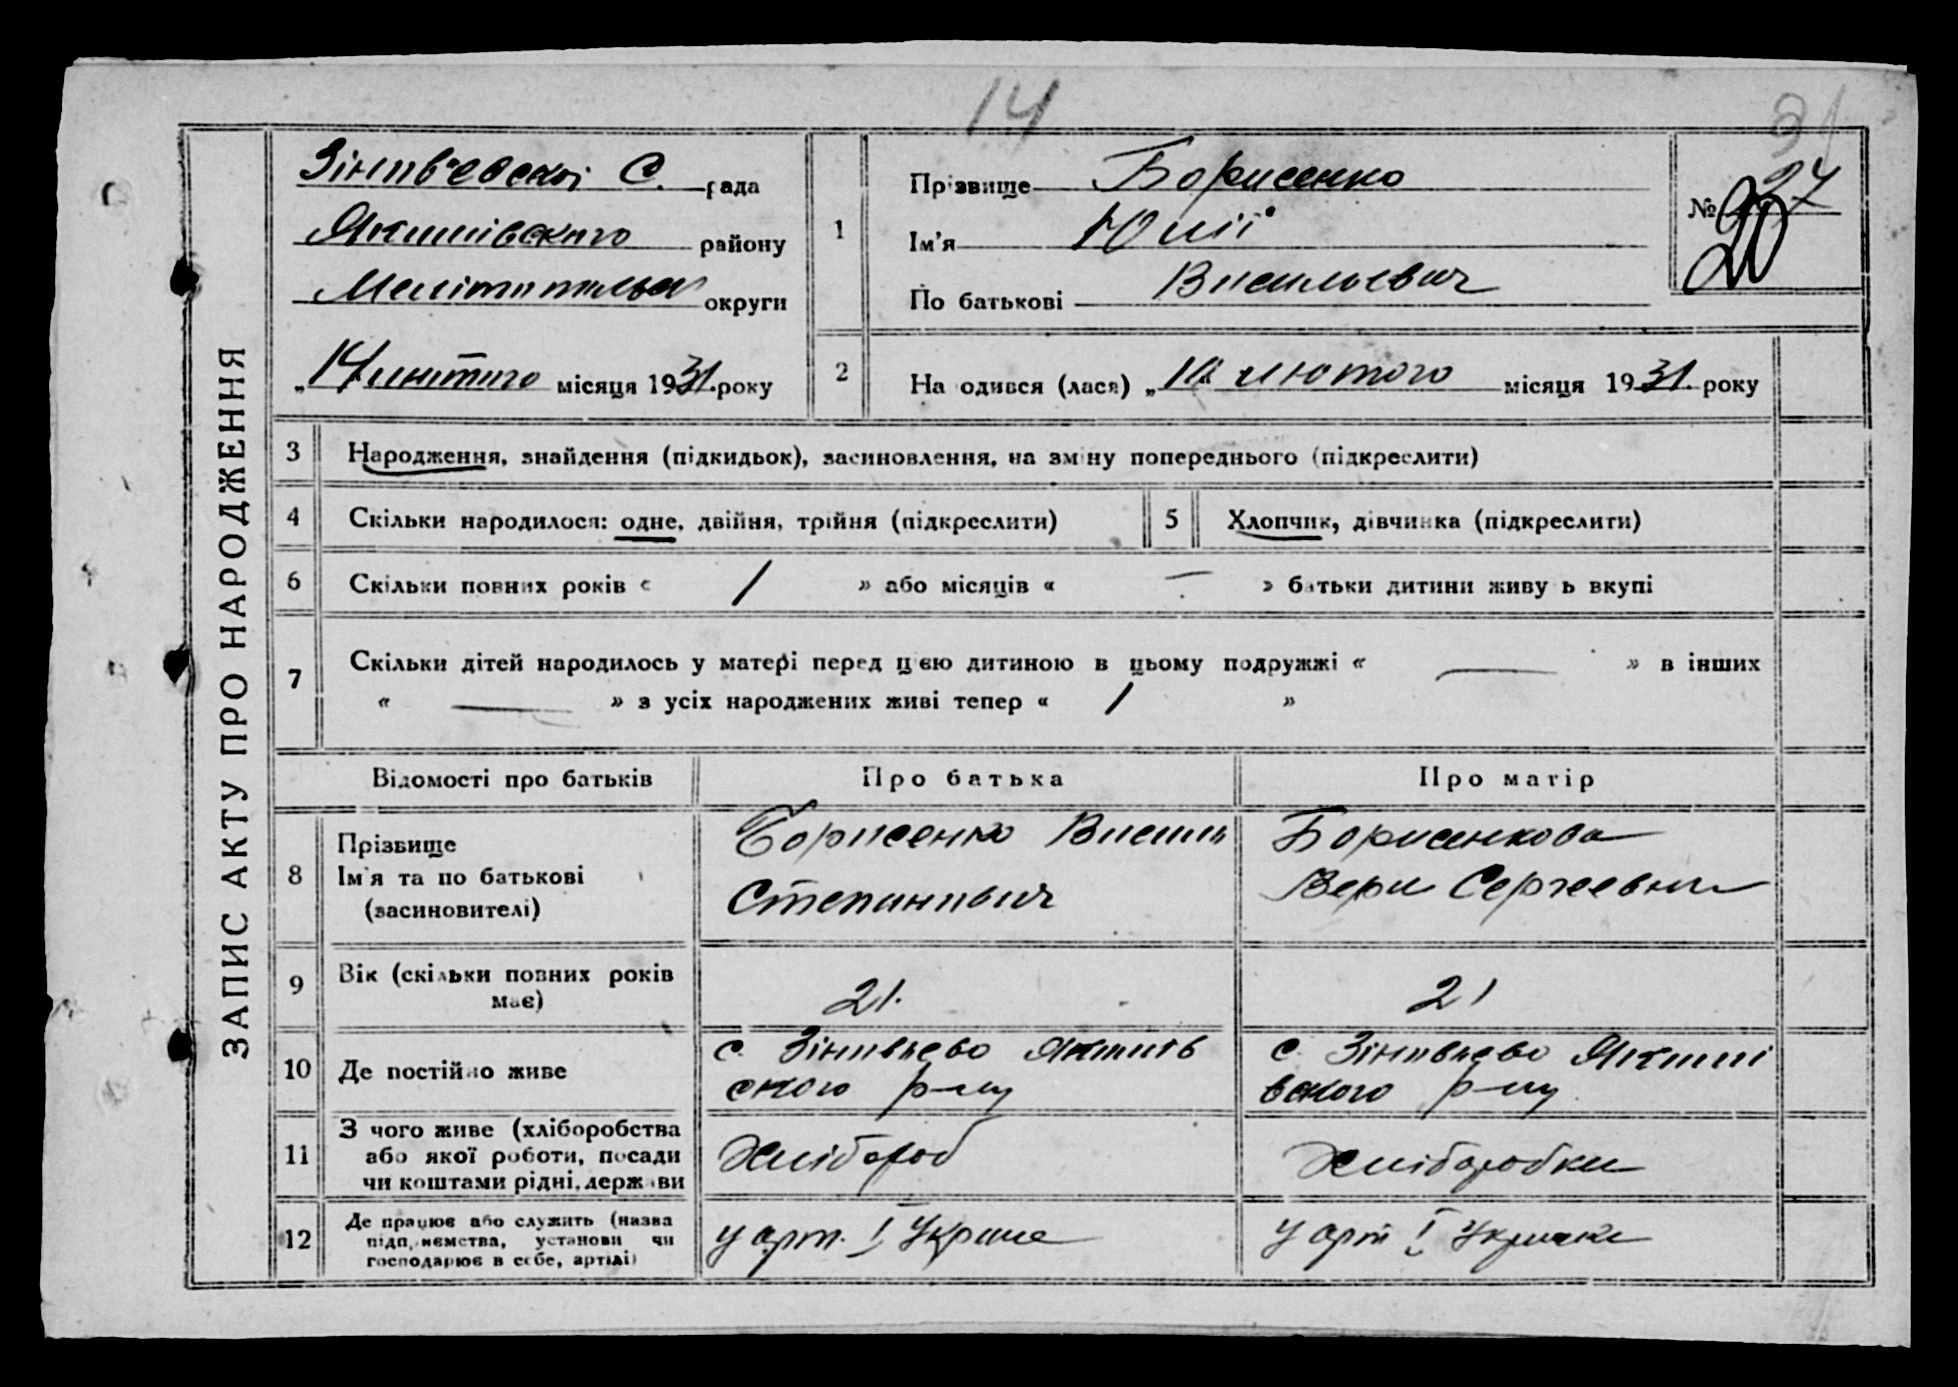 14
ЗАПИС АКТУ ПРО НАРОДЖЕННЯ
Зінов'евскої С. рада
Якимівского району
Мелітопільск округи
„14 лютого місяця 1931. року
1
Прізвище Борисенко
Ім'я Юлій
По батькові Васильевич
№ 27
20
2
Народився (лася) „10 лютого місяця 1931. року
3 Народження, знайдення (підкидьок), засиновлення, на зміну попереднього (підкреслити)
4 Скільки народилося: одне, двійня, трійня (підкреслити)
5 Хлопчик, дівчинка (підкреслити)
6 Скільки повних років « 1 » або місяців « — » батьки дитини живуть вкупі
7 Скільки дітей народилось у матері перед цією дитиною в цьому подружжі « — » в інших
« — » з усіх народжених живі тепер « 1 »
Відомості про батьків Про батька Про матір
8 Прізвище
Ім'я та по батькові
(засиновителі)
Борисенко Василь
Степанович
Борисенкова
Вера Сергеевна
9 Вік (скільки повних років
має)
21.
21
10 Де постійно живе
с. Зіновьево Якимів
ского р-ну
с. Зіновьево Якимі
вского р-ну
11 З чого живе (хліборобства
або якої роботи, посади
чи коштами рідні, держави
Хлібороб
Хліборобка
12 Де працює або служить (назва
підприємства, установи чи
господарює в себе, артілі)
у арт. І
у арт І